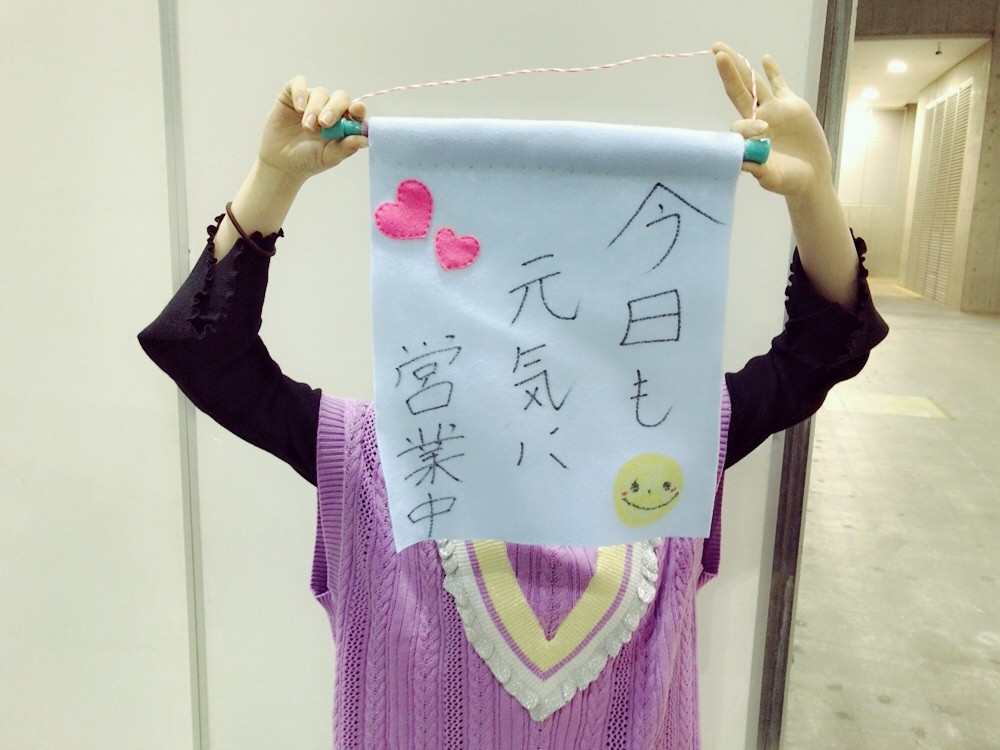 今日も
元気に
営業中